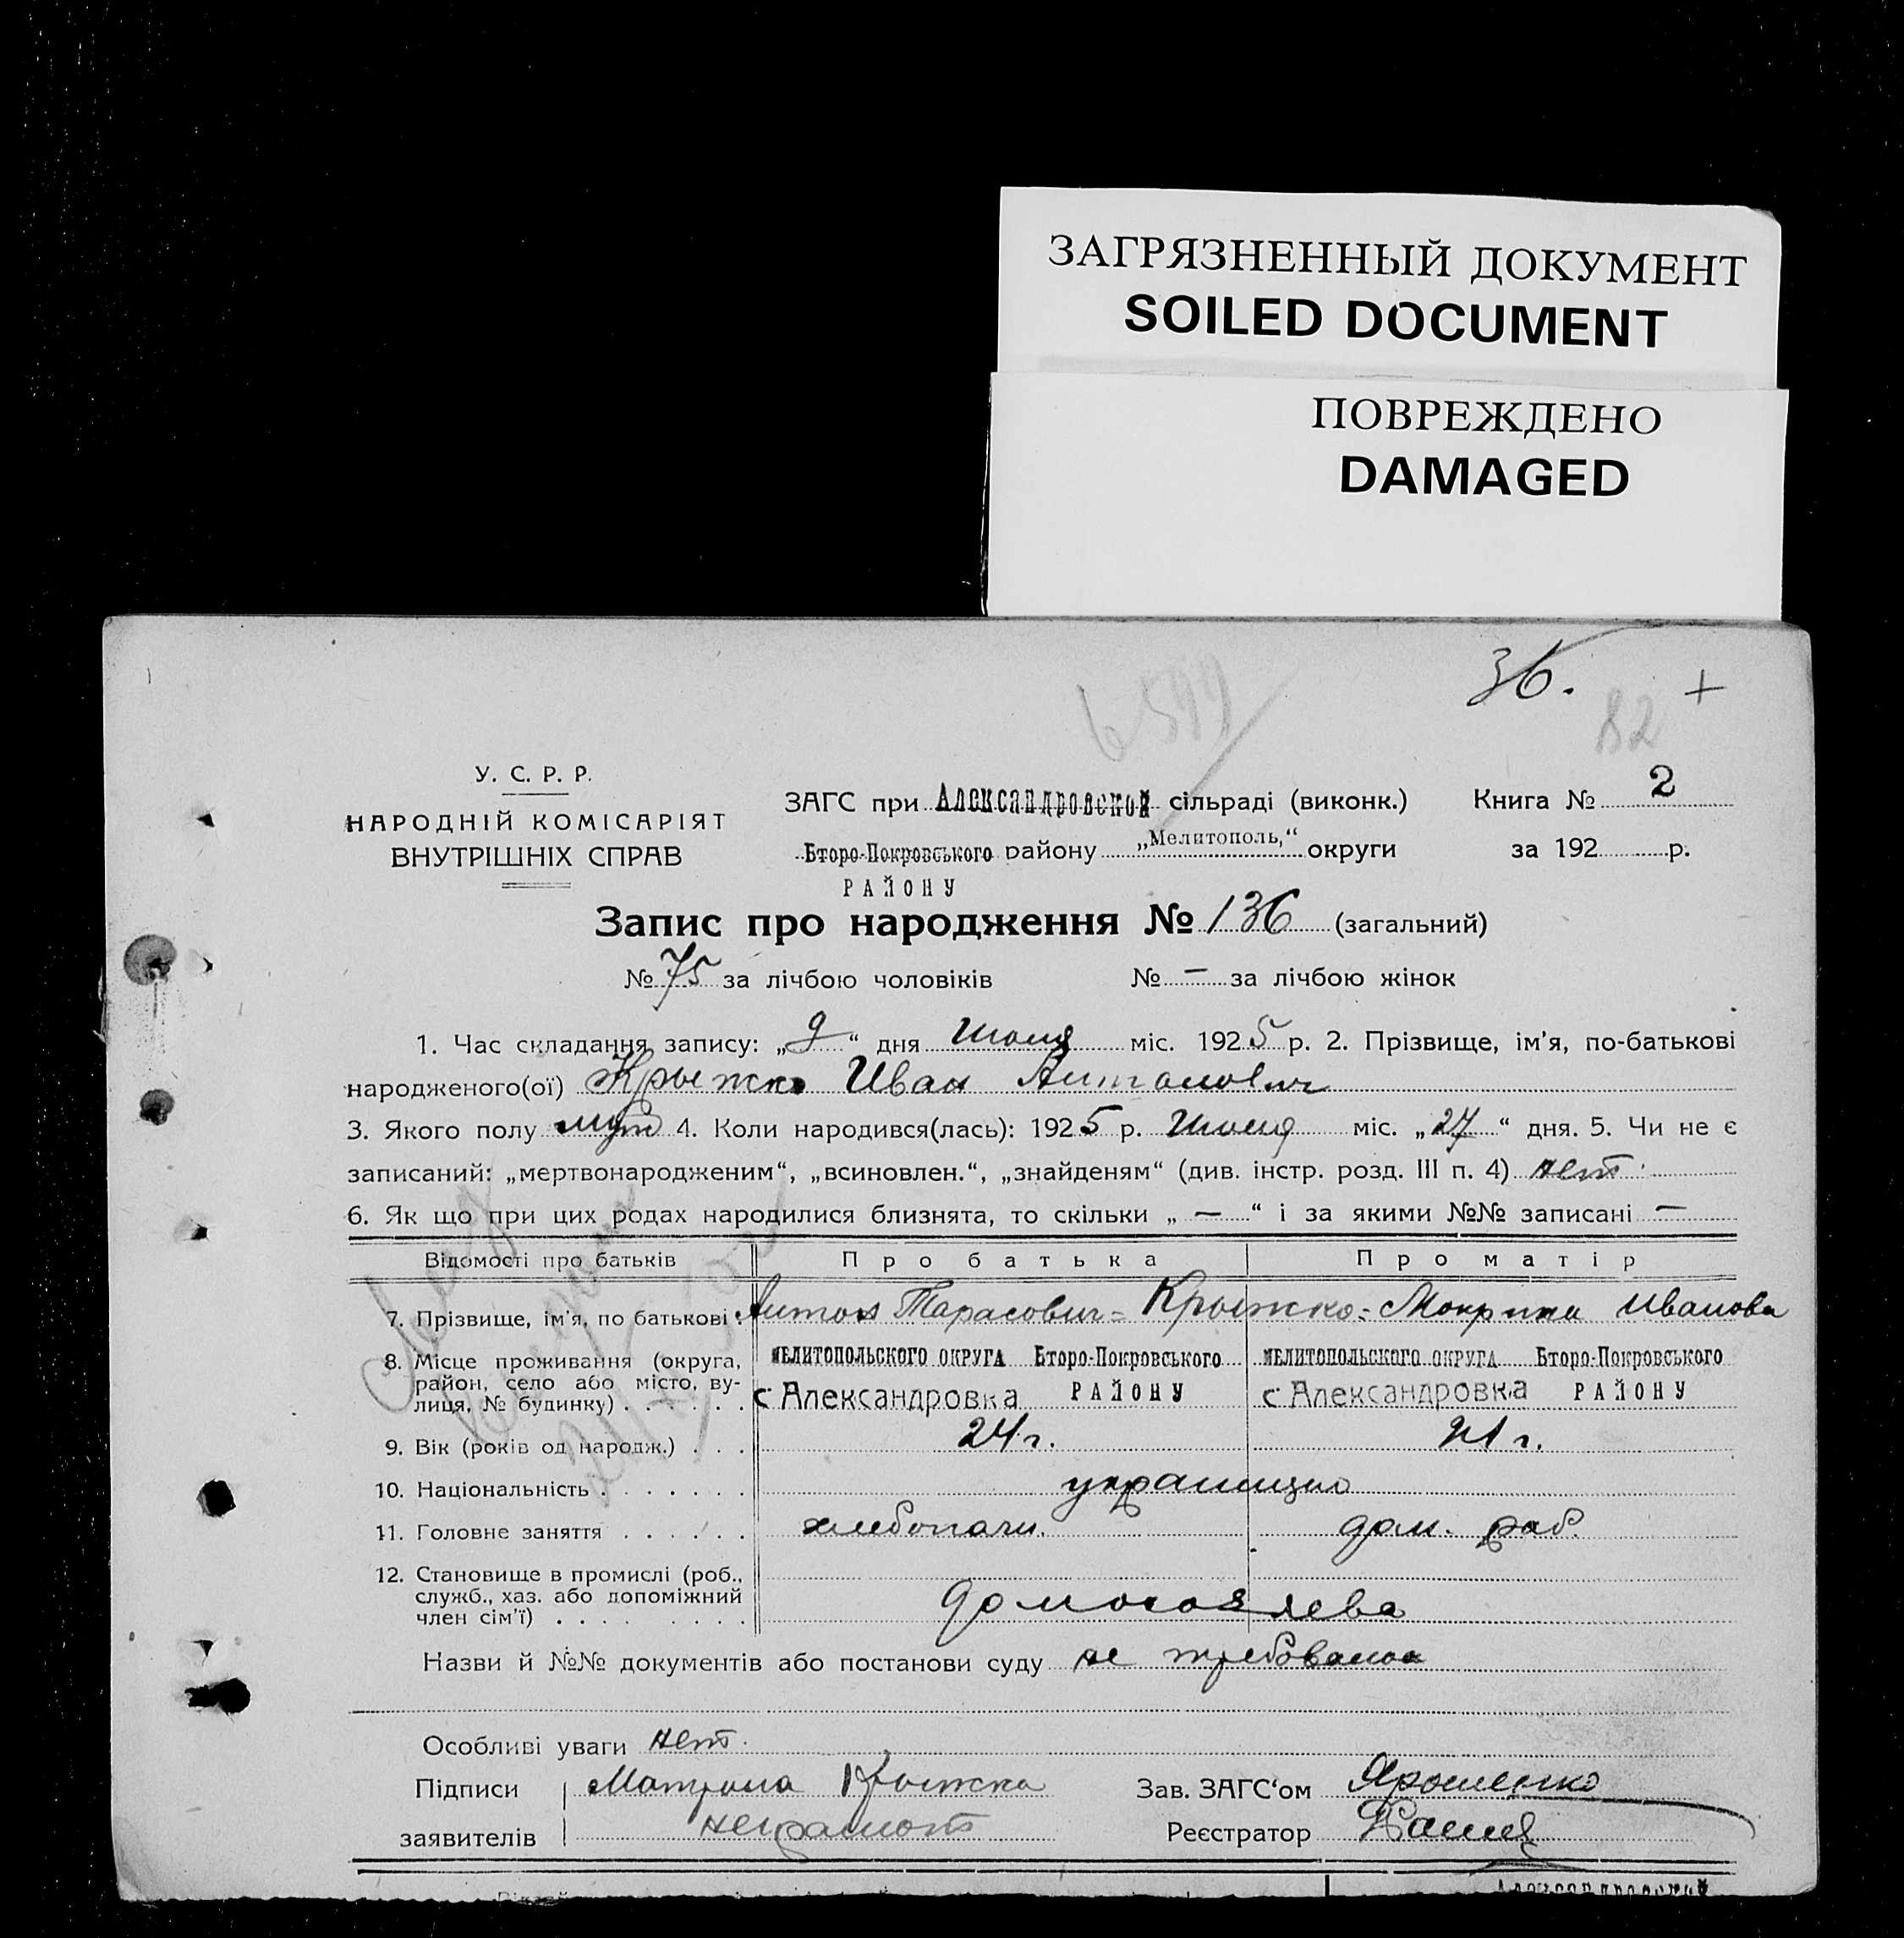 ЗАГРЯЗНЕННЫЙ ДОКУМЕНТ
SOILED DOCUMENT
ПОВРЕЖДЕНО
DAMAGED
36. +
6599
82
У. С. Р. Р.
НАРОДНІЙ КОМІСАРІЯТ
ВНУТРІШНІХ СПРАВ
ЗАГС при Александровской сільраді (виконк.) Книга № 2
Второ-Покровського району „Мелитополь,“ округи за 192 р.
РАЙОНУ
Запис про народження № 136 (загальний)
№ 75 за лічбою чоловіків № — за лічбою жінок
1. Час складання запису: „9“ дня Июля міс. 1925 р. 2. Прізвище, ім'я, по-батькові
народженого(ої) Крыжко Иван Антонович
3. Якого полу муж 4. Коли народився(лась): 1925 р. міс. „27“ дня. 5. Чи не є
записаний: „мертвонародженим“, „всиновлен.“, „знайденям“ (див. інстр. розд. III п. 4) нет.
6. Як що при цих родах народилися близнята, то скільки „ — “ і за якими №№ записані —
Відомості про батьків Про батька Про матір
7. Прізвище, ім'я, по батькові Антон Тарасович = Крыжко = Иванова
8. Місце проживання (округа, МЕЛИТОПОЛЬСКОГО ОКРУГА Второ-Покровського МЕЛИТОПОЛЬСКОГО ОКРУГА Второ-Покровського
район, село або місто, ву-
лиця, № будинку) . . . . . . с Александровка РАЙОНУ с Александровка РАЙОНУ
9. Вік (років од народж.) . . . 24 г. 21 г.
10. Національність . . . . . . . украинцы
11. Головне заняття . . . . . . хлебопаш. дом. раб.
12. Становище в промислі (роб.,
служб., хаз. або допоміжний
член сім'ї) . . . . . . . . .
Назви й №№ документів або постанови суду не требовалось
Особливі уваги нет.
Підписи Матрона Крыжко Зав. ЗАГС'ом Ярошенко
заявителів неграмот Реєстратор
Александровский